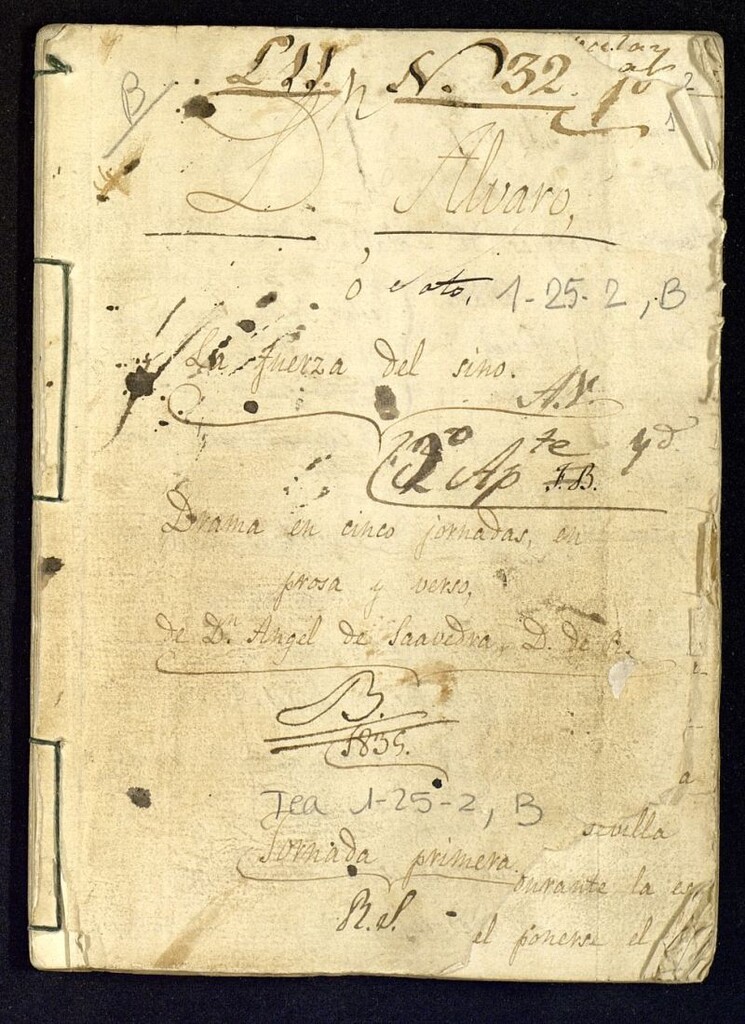 L.11. N. 32.
B
1
Dn
D. Alvaro,
ó 1-25-2, B
La fuerza del sino.
A.V.
2º Apte
F.B.
Drama en cinco jornadas, en
prosa y verso,
de Dn Angel de Saavedra, D. de R.
B.
1835.
Tea 1-25-2, B
Jornada primera.
sevilla
durante la
R.S.
el ponerse el